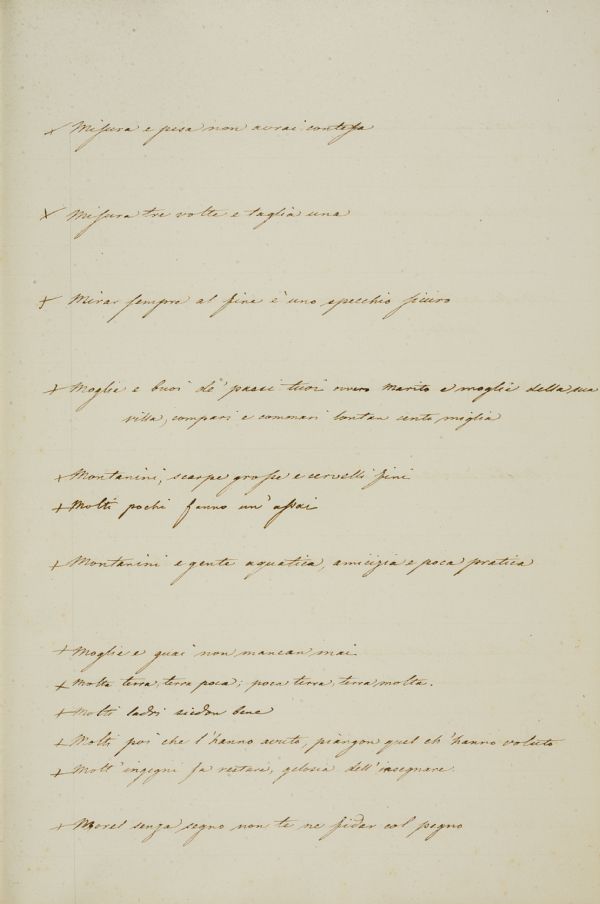 x Misura e pesa non avrai contesa
x Misura tre volte e taglia una
x Mirar sempre al fine è uno specchio sicuro
+ Moglie e buoi de' paesi tuoi ovvero Marito e moglie della sua
villa, compari e commari lontan cento miglia
+ Montanini, scarpe grosse e cervelli fini
+ Molti pochi fanno un' assai
+ Montanini e gente aquatica, amicizia e poca pratica
+ Moglie e guai non mancan mai
+ Molta terra, terra poca; poca terra, terra molta.
+ Molti ladri siedon bene
+ Molti poi che l'hanno avuto, piangon quel ch' hanno voluto
+ Molt' ingegni fa restare, gelosia dell' insegnare.
+ Morel senza segno non te ne fidar col pegno